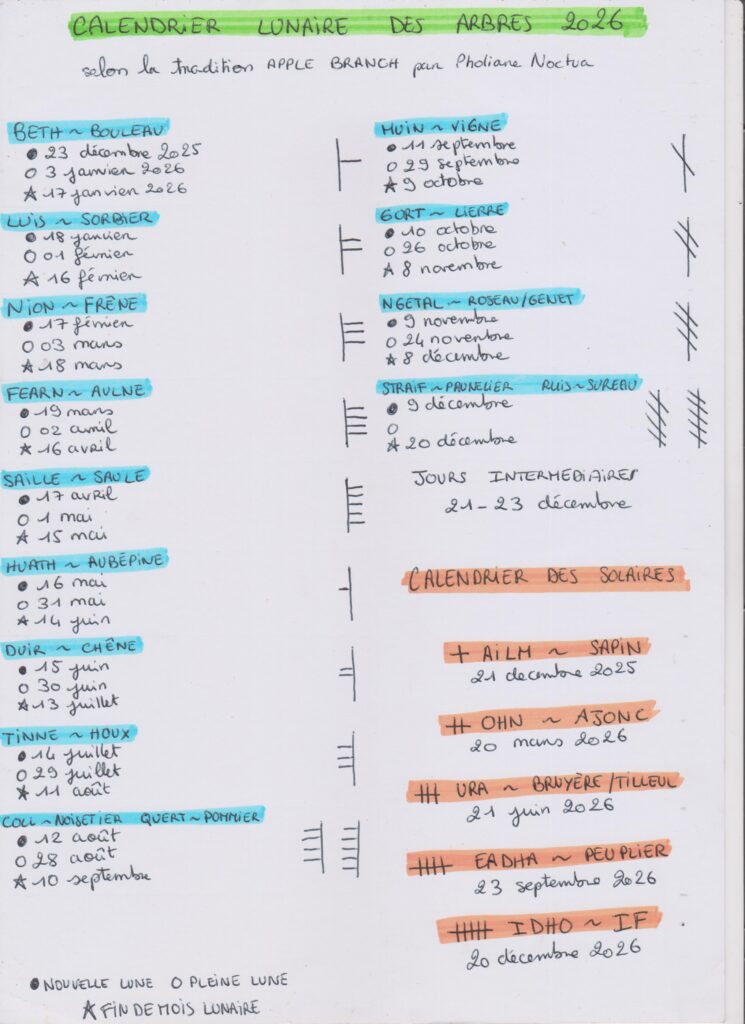 CALENDRIER LUNAIRE DES ARBRES 2026
selon la tradition APPLE BRANCH par Pholiane Noctua
BETH ~ BOULEAU
● 23 décembre 2025
○ 3 janvier 2026
☆ 17 janvier 2026
LUIS ~ SORBIER
● 18 janvier
○ 01 février
☆ 16 février
NION ~ FRÊNE
● 17 février
○ 03 mars
☆ 18 mars
FEARN ~ AULNE
● 19 mars
○ 02 avril
☆ 16 avril
SAILLE ~ SAULE
● 17 avril
○ 1 mai
☆ 15 mai
HUATH ~ AUBÉPINE
● 16 mai
○ 31 mai
☆ 14 juin
DUIR ~ CHÊNE
● 15 juin
○ 30 juin
☆ 13 juillet
TINNE ~ HOUX
● 14 juillet
○ 29 juillet
☆ 11 août
COLL ~ NOISETIER QUERT ~ POMMIER
● 12 août
○ 28 août
☆ 10 septembre
MUIN ~ VIGNE
● 11 septembre
○ 29 septembre
☆ 9 octobre
GORT ~ LIERRE
● 10 octobre
○ 26 octobre
☆ 8 novembre
NGETAL ~ ROSEAU/GENET
● 9 novembre
○ 24 novembre
☆ 8 décembre
STRAIF ~ PRUNELIER RUIS ~ SUREAU
● 9 décembre
○
☆ 20 décembre
JOURS INTERMEDIAIRES
21-23 décembre
CALENDRIER DES SOLAIRES
AILM ~ SAPIN
21 decembre 2025
OHN ~ AJONC
20 mars 2026
URA ~ BRUYÈRE/TILLEUL
21 juin 2026
EADHA ~ PEUPLIER
23 septembre 2026
IDHO ~ IF
20 décembre 2026
● NOUVELLE LUNE ○ PLEINE LUNE
☆ FIN DE MOIS LUNAIRE